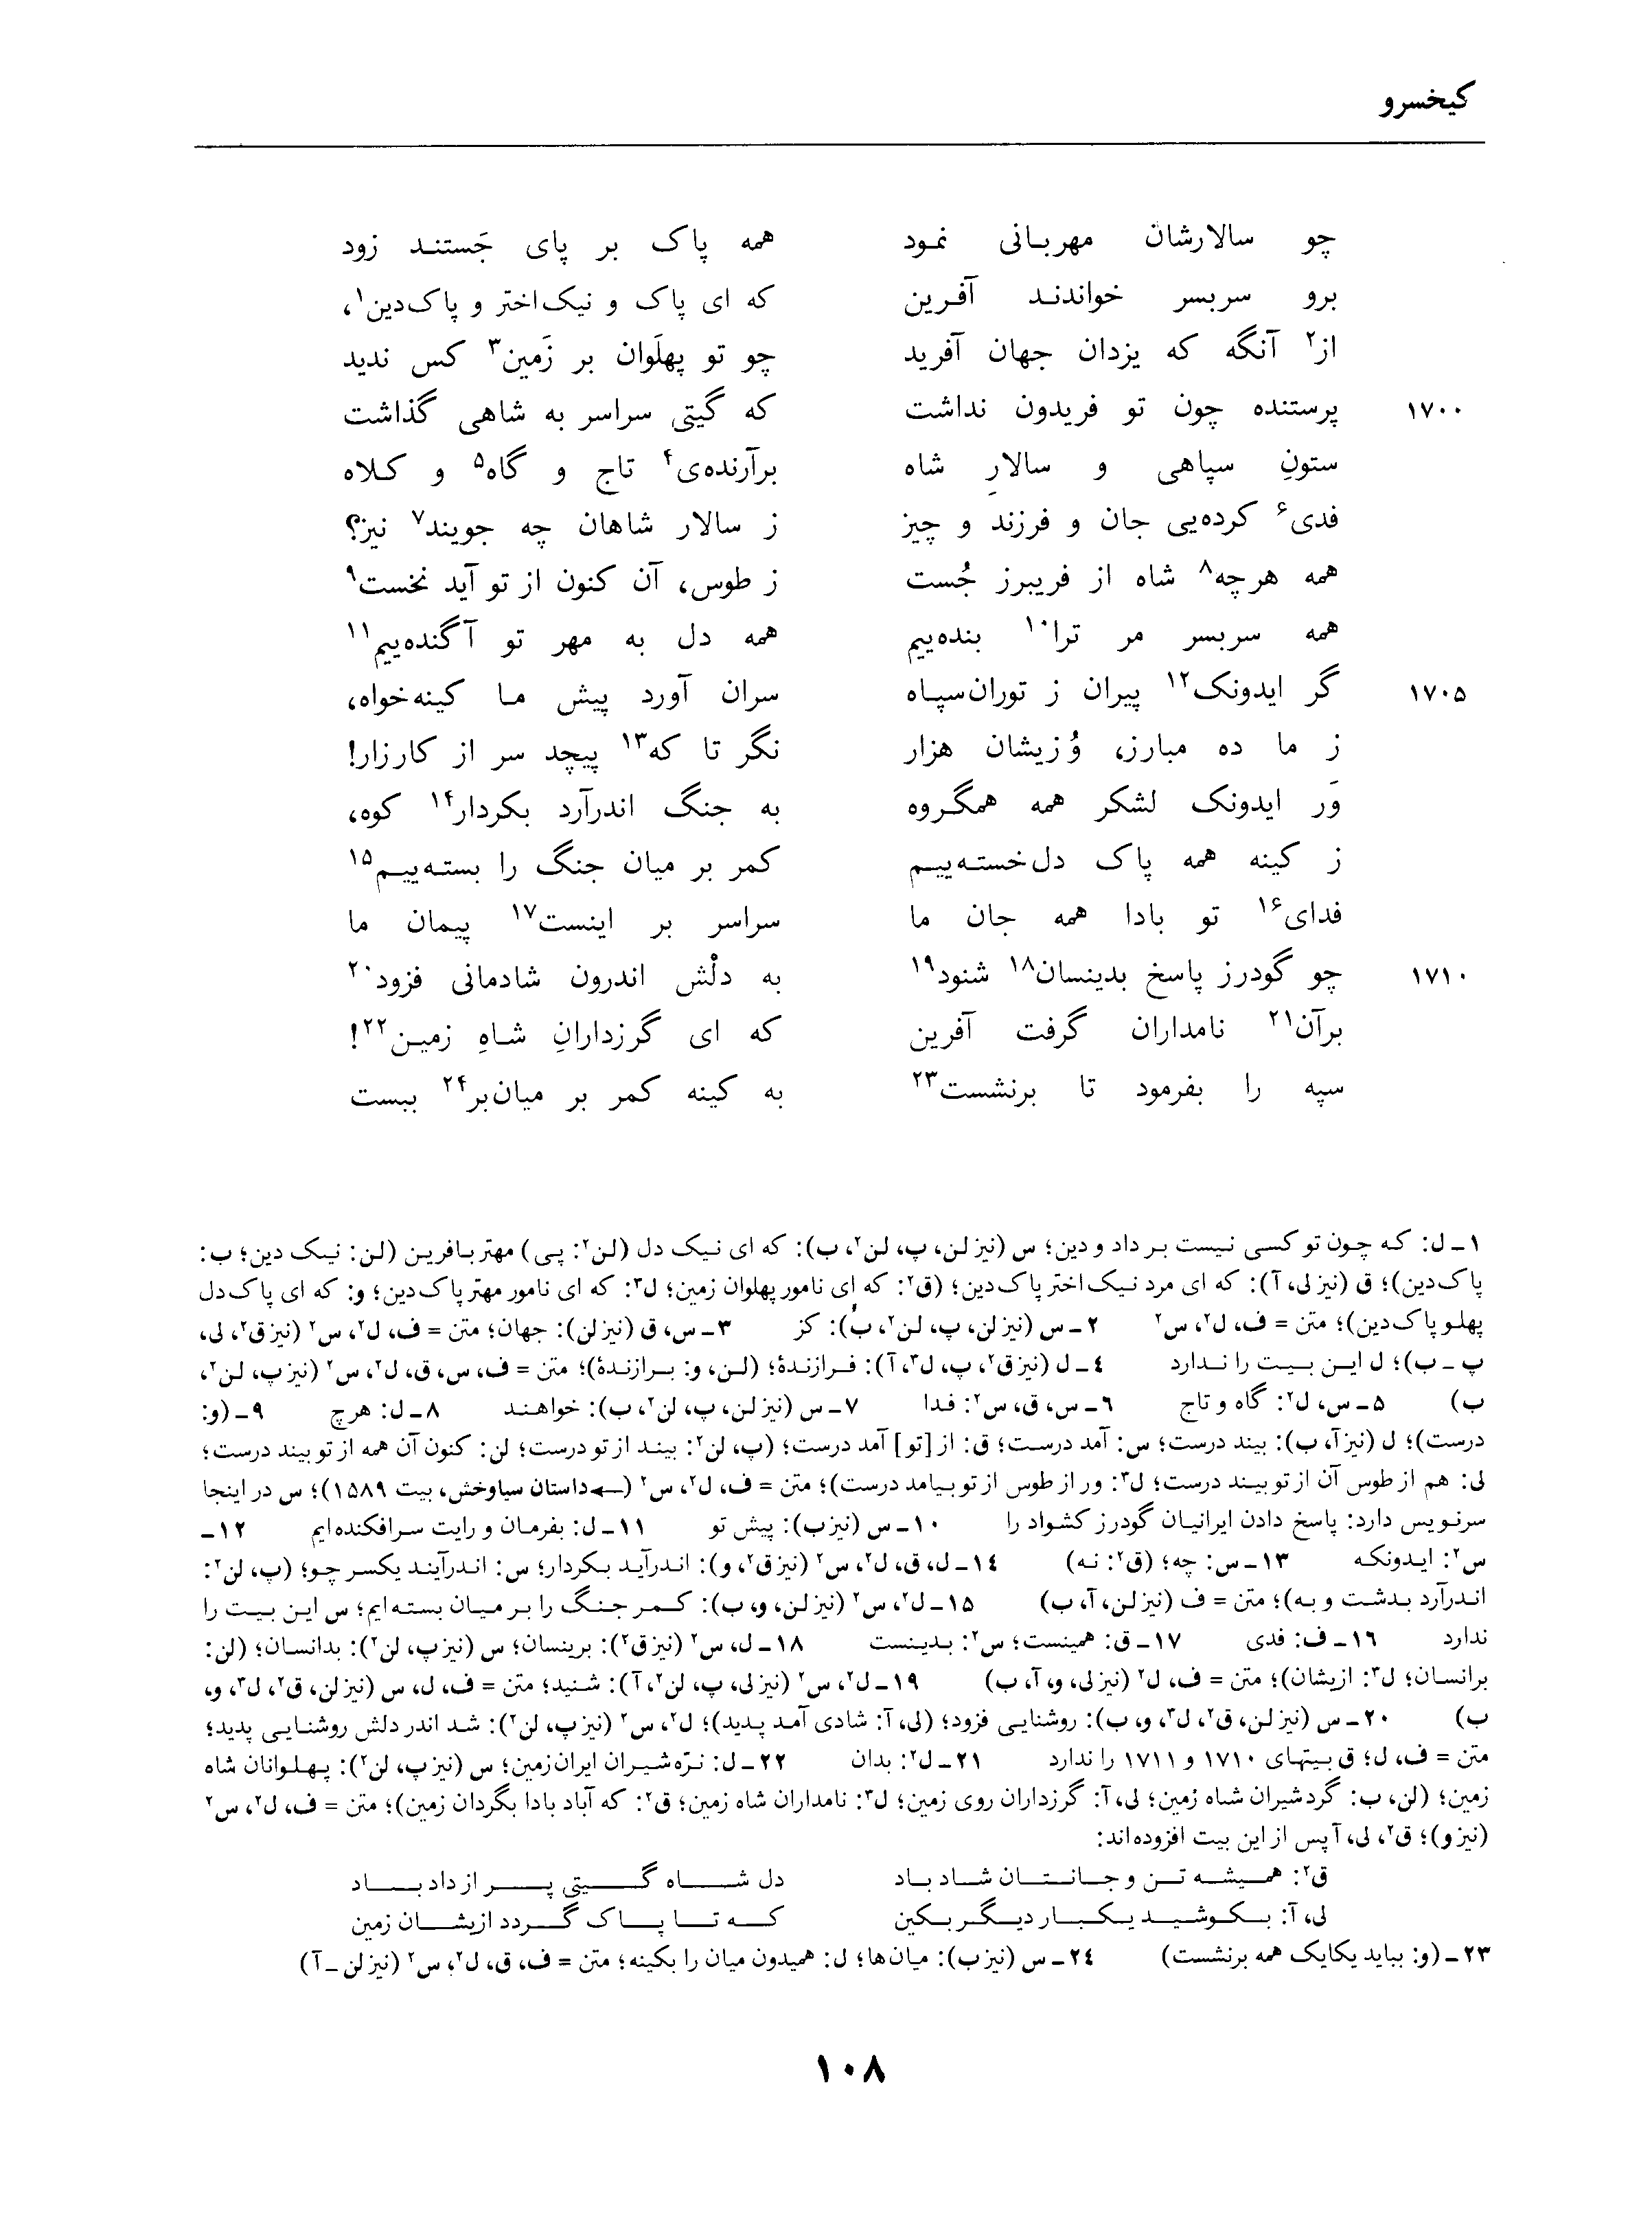 کیخسرو
چو سالارشان مهربانی نمود همه پاک بر پای جَستند زود
برو سربسر خواندند آفرین که ای پاک و نیک‌اختر و پاک‌دین۱،
از۲ آنگه که یزدان جهان آفرید چو تو پهلَوان بر زَمین۳ کس ندید
۱۷۰۰ پرستنده چون تو فریدون نداشت که گیتی سراسر به شاهی گذاشت
ستونِ سپاهی و سالارِ شاه برآرنده‌ی۴ تاج و گاه۵ و کلاه
فدی۶ کرده‌یی جان و فرزند و چیز ز سالار شاهان چه جویند۷ نیز؟
همه هرچه۸ شاه از فریبرز جُست ز طوس، آن کنون از تو آید نخست۹
همه سربسر مر ترا۱۰ بنده‌ییم همه دل به مهر تو آگنده‌ییم۱۱
۱۷۰۵ گر ایدونک۱۲ پیران ز توران‌سپاه سران آورد پیش ما کینه‌خواه،
ز ما ده مبارز، وُزیشان هزار نگر تا که۱۳ پیچد سر از کارزار!
وَر ایدونک لشکر همه همگروه به جنگ اندرآرد بکردار۱۴ کوه،
ز کینه همه پاک دل‌خسته‌ییم کمر بر میان جنگ را بسته‌ییم۱۵
فدای۱۶ تو بادا همه جان ما سراسر بر اینست۱۷ پیمان ما
۱۷۱۰ چو گودرز پاسخ بدینسان۱۸ شنود۱۹ به دلْش اندرون شادمانی فزود۲۰
برآن۲۱ نامداران گرفت آفرین که ای گرزدارانِ شاهِ زمین۲۲!
سپه را بفرمود تا برنشست۲۳ به کینه کمر بر میان‌بر۲۴ ببست
۱ـ ل: که چون تو کسی نیست بر داد و دین؛ س (نیز لن، پ، لن۲، ب): که ای نیک دل (لن۲: پی) مهتر بافرین (لن: نیک دین؛ ب:
پاک‌دین)؛ ق (نیز لی، آ): که ای مرد نیک‌اختر پاک‌دین؛ (ق۲: که ای نامور پهلوان زمین؛ ل۳: که ای نامور مهتر پاک‌دین؛ و: که ای پاک‌دل
پهلو پاک‌دین)؛ متن = ف، ل۲، س۲ ۲ـ س (نیز لن، پ، لن۲، ب): کز ۳ـ س، ق (نیز لن): جهان؛ متن = ف، ل۲، س۲ (نیز ق۲، لی،
پ ـ ب)؛ ل این بیت را ندارد ۴ـ ل (نیز ق۲، پ، ل۳، آ): فرازندهٔ؛ (لن، و: برازندهٔ)؛ متن = ف، س، ق، ل۲، س۲ (نیز پ، لن۲،
ب) ۵ـ س، ل۲: گاه و تاج ۶ـ س، ق، س۲: فدا ۷ـ س (نیز لن، پ، لن۲، ب): خواهند ۸ـ ل: هرچ ۹ـ (و:
درست)؛ ل (نیز آ، ب): بیند درست؛ س: آمد درست؛ ق: از [تو] آمد درست؛ (پ، لن۲: بیند از تو درست؛ لن: کنون آن همه از تو بیند درست؛
لی: هم از طوس آن از تو بیند درست؛ ل۳: ور از طوس از تو بیامد درست)؛ متن = ف، ل۲، س۲ (←داستان سیاوخش، بیت ۱۵۸۹)؛ س در اینجا
سرنویس دارد: پاسخ دادن ایرانیان گودرز کشواد را ۱۰ـ س (نیز ب): پیش تو ۱۱ـ ل: بفرمان و رایت سرافکنده‌ایم ۱۲ـ
س۲: ایدونکه ۱۳ـ س: چه؛ (ق۲: نه) ۱۴ـ ل، ق، ل۲، س۲ (نیز ق۲، و): اندرآید بکردار؛ س: اندرآیند یکسر چو؛ (پ، لن۲:
اندرآرد بدشت و به)؛ متن = ف (نیز لن، آ، ب) ۱۵ـ ل۲، س۲ (نیز لن، و، ب): کمر جنگ را بر میان بسته‌ایم؛ س این بیت را
ندارد ۱۶ـ ف: فدی ۱۷ـ ق: همینست؛ س۲: بدینست ۱۸ـ ل، س۲ (نیز ق۲): برینسان؛ س (نیز پ، لن۲): بدانسان؛ (لن:
برانسان؛ ل۳: ازیشان)؛ متن = ف، ل۲ (نیز لی، و، آ، ب) ۱۹ـ ل۲، س۲ (نیز لی، پ، لن۲، آ): شنید؛ متن = ف، ل، س (نیز لن، ق۲، ل۳، و،
ب) ۲۰ـ س (نیز لن، ق۲، ل۳، و، ب): روشنایی فزود؛ (لی، آ: شادی آمد پدید)؛ ل۲، س۲ (نیز پ، لن۲): شد اندر دلش روشنایی پدید؛
متن = ف، ل؛ ق بیتهای ۱۷۱۰ و ۱۷۱۱ را ندارد ۲۱ـ ل۲: بدان ۲۲ـ ل: نرّه شیران ایران زمین؛ س (نیز پ، لن۲): پهلوانان شاه
زمین؛ (لن، ب: گرد شیران شاه زمین؛ لی، آ: گرزداران روی زمین؛ ل۳: نامداران شاه زمین؛ ق۲: که آباد بادا بگردان زمین)؛ متن = ف، ل۲، س۲
(نیز و)؛ ق۲، لی، آ پس از این بیت افزوده‌اند:
ق۲: همیشه تن و جانتان شاد باد دل شاه گیتی پر از داد باد
لی، آ: بکوشید یکبار دیگر بکین که تا پاک گردد ازیشان زمین
۲۳ـ (و: بباید یکایک همه برنشست) ۲۴ـ س (نیز ب): میان‌ها؛ ل: همیدون میان را بکینه؛ متن = ف، ق، ل۲، س۲ (نیز لن ـ آ)
۱۰۸